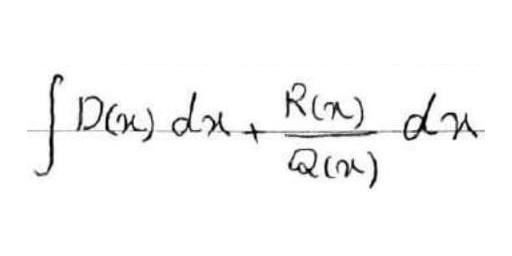 ∫ D(x) dx + R(x)/Q(x) dx